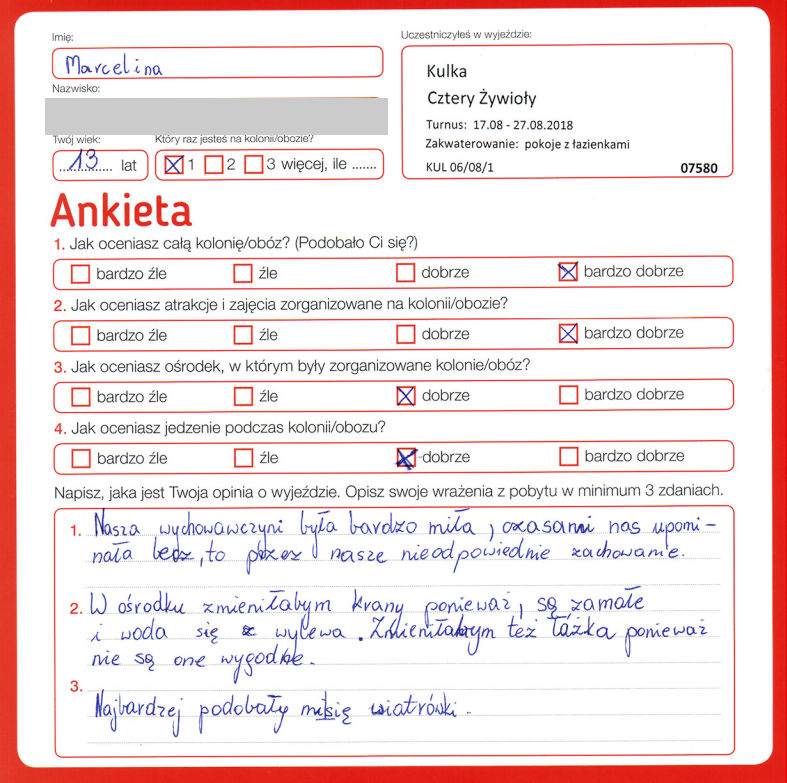 Imię:
Marcelina
Nazwisko:
Twój wiek:
13 lat
Który raz jesteś na kolonii/obozie?
1 2 3 więcej, ile .......
Uczestniczyłeś w wyjeździe:
Kulka
Cztery Żywioły
Turnus: 17.08 - 27.08.2018
Zakwaterowanie: pokoje z łazienkami
KUL 06/08/1 07580
Ankieta
1. Jak oceniasz całą kolonię/obóz? (Podobało Ci się?)
bardzo źle źle dobrze bardzo dobrze
2. Jak oceniasz atrakcje i zajęcia zorganizowane na kolonii/obozie?
bardzo źle źle dobrze bardzo dobrze
3. Jak oceniasz ośrodek, w którym były zorganizowane kolonie/obóz?
bardzo źle źle dobrze bardzo dobrze
4. Jak oceniasz jedzenie podczas kolonii/obozu?
bardzo źle źle dobrze bardzo dobrze
Napisz, jaka jest Twoja opinia o wyjeździe. Opisz swoje wrażenia z pobytu w minimum 3 zdaniach.
1. Nasza wychowawczyni była bardzo miła, czasami nas upomi-
nała lecz, to przez nasze nieodpowiednie zachowanie.
2. W ośrodku zmieniłabym krany ponieważ, są zamałe
i woda się wylewa. Zmieniłabym też łóżka ponieważ
nie są one wygodne.
3. Najbardzej podobały mi się wiatrówki.